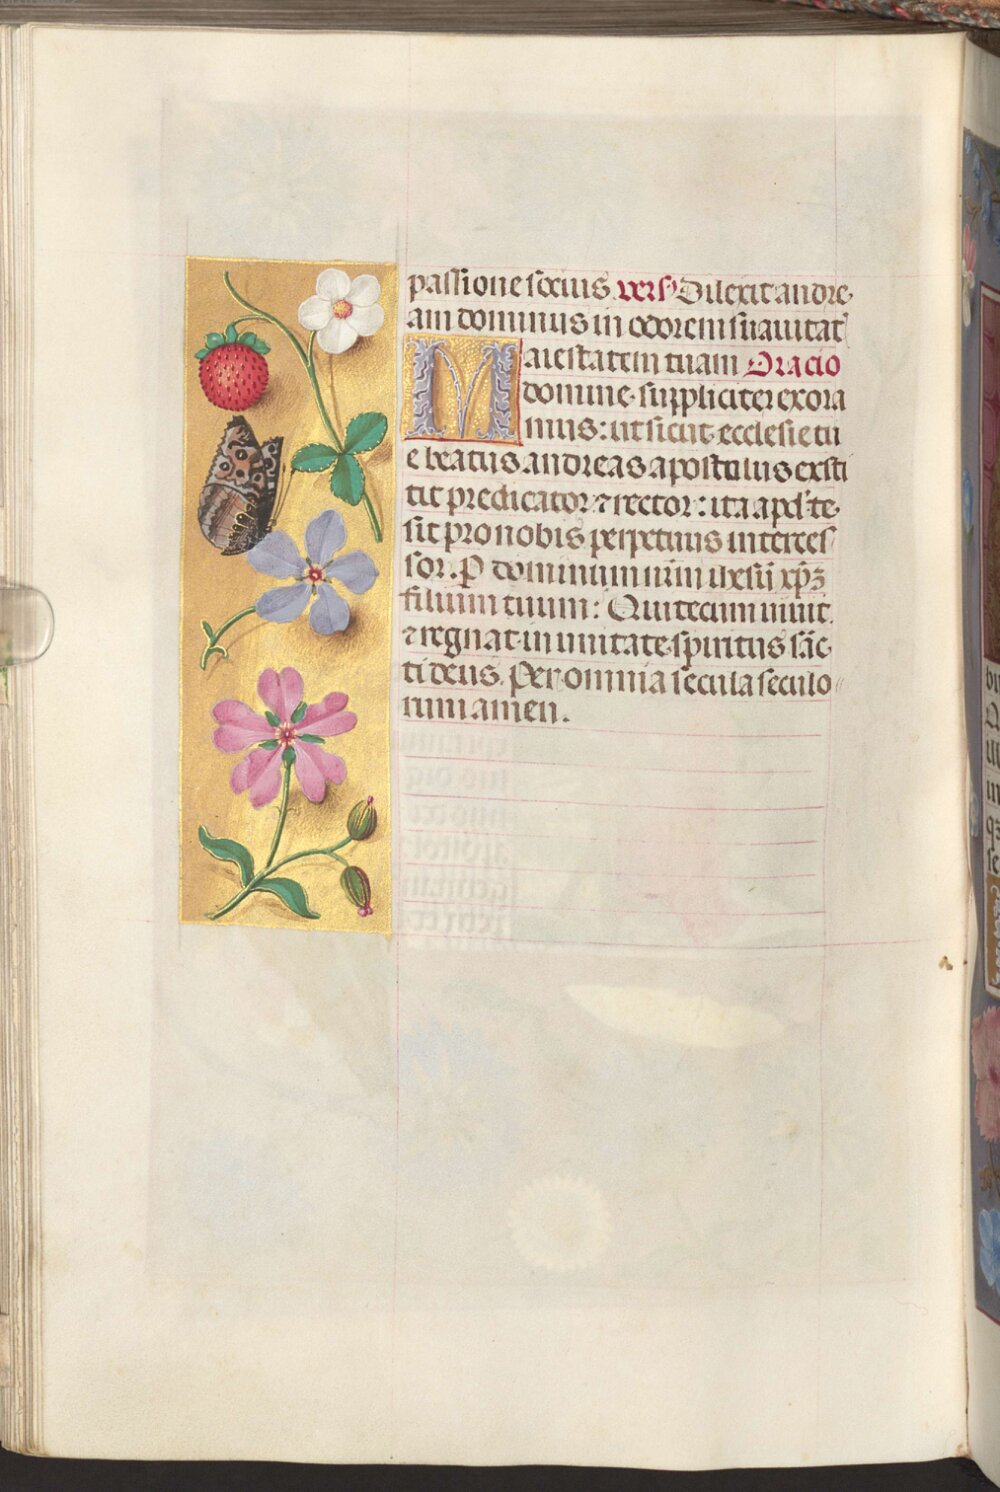 passione socius. vers᷒ Dilexit andre
am dominus in odorem suauitat᷒
Maiestatem tuam Oracio
domine suppliciter exora
mus: ut sicut ecclesie tu
e beatus andreas apostulus exsti
tit predicator ⁊ rector: ita apd' te
sit pro nobis perpetuus interces
sor. P dominum nr̄m ihesū xp̄ꝫ
filium tuum: Qui tecum uiuit
⁊ regnat in unitate spiritus sāc
ti deus. Per omnia secula seculo
rum amen.